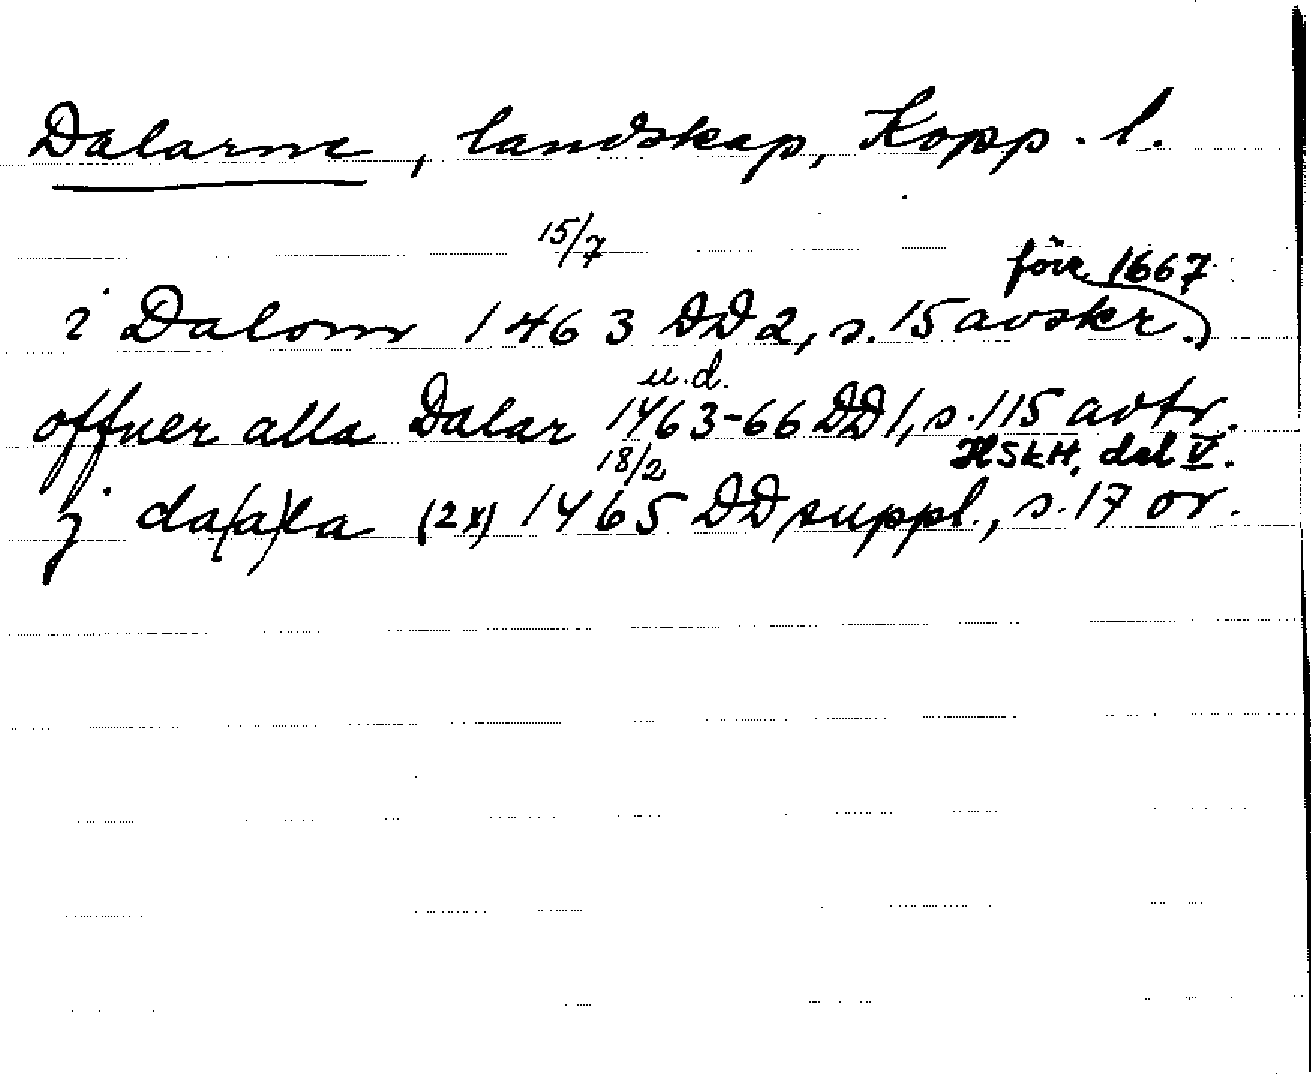 Dalarne, landskap, Kopp. l.
15/7
före 1667
i Dalom 1463 DD 2, s. 15 avskr.
u.d.
offuer alla Dalar 1463-66 DD 1, s. 115 avtr.
18/2 HSkH, del V.
j da(a)la (2x) 1465 DD suppl., s. 17 or.